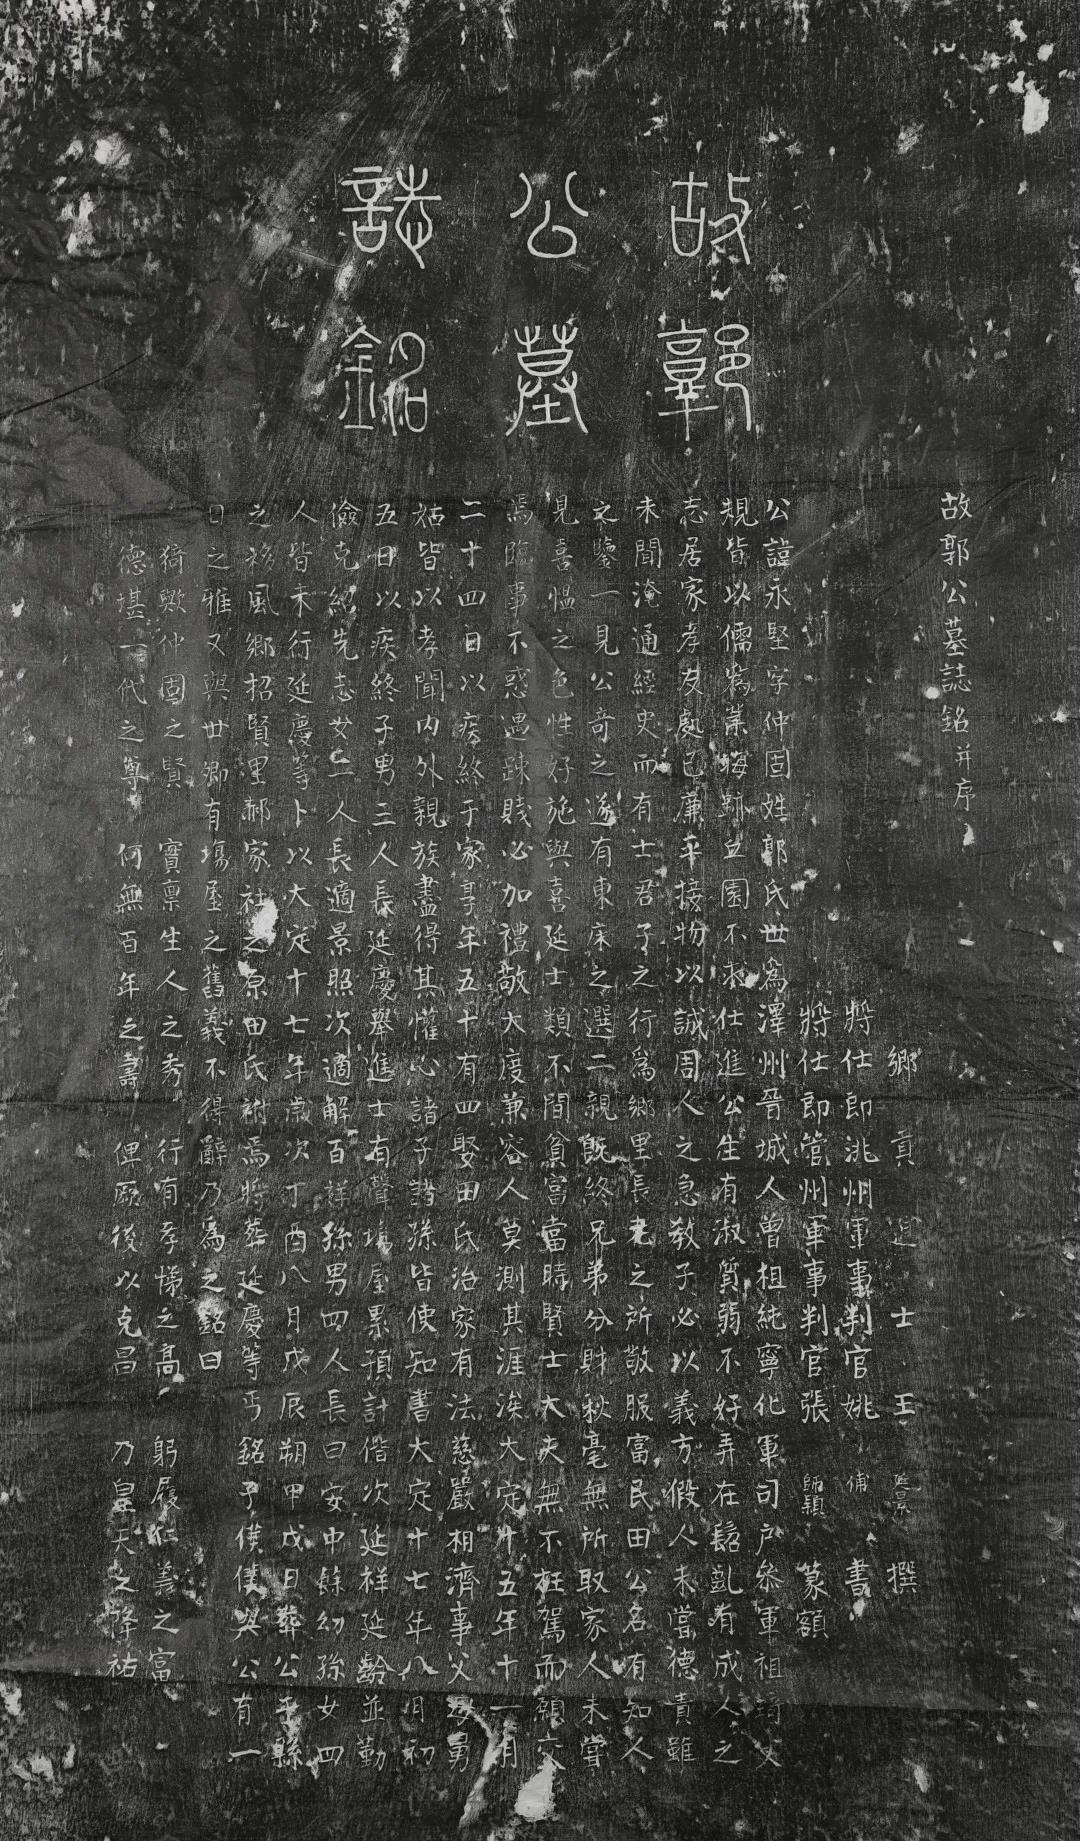 故郭
公墓
誌銘
故郭公墓誌銘并序
鄉貢進士王 撰
將仕郎洮州軍事判官姚 書
將仕郎管州軍事判官張師穎篆額
公諱永堅字仲固姓郭氏世為澤州晉城人曾祖純寧化軍司戶叅軍祖琦父
規皆以儒為業晦跡丘園不求仕進公生有淑質弱不好弄在髫齓有成人之
志居家孝友處己廉平接物以誠周人之急教子必以義方假人未嘗德責雖
未聞淹通經史而有士君子之行為鄉里長老之所敬服富民田公名有知人
之鑒一見公奇之遂有東床之選二親既終兄弟分財秋毫無所取家人未嘗
見喜慍之色性好施與喜延士類不間貧富當時賢士大夫無不枉駕而願交
焉臨事不惑遇踈賤必加禮敬大度兼容人莫測其涯涘大定十五年十一月
二十四日以疾終于家享年五十有四娶田氏治家有法慈嚴相濟事父母舅
姑皆以孝聞內外親族盡得其懽心諸子諸孫皆使知書大定十七年八月初
五日以疾終子男三人長延慶舉進士有聲場屋累預計偕次延祥延齡並勤
儉克紹先志女二人長適景照次適解百祥孫男四人長曰安中餘幼孫女四
人皆未行延慶等卜以大定十七年歲次丁酉八月戊辰朔甲戌日葬公于縣
之移風鄉招賢里郝家社之原田氏祔焉將葬延慶等丐銘予僕僕與公有一
日之雅又與世卿有場屋之舊義不得辭乃為之銘曰
猗歟仲固之賢 實禀生人之秀 行有孝悌之高 躬履仁義之富
德堪一代之尊 何無百年之壽 俾厥後以克昌 乃皇天之降祐